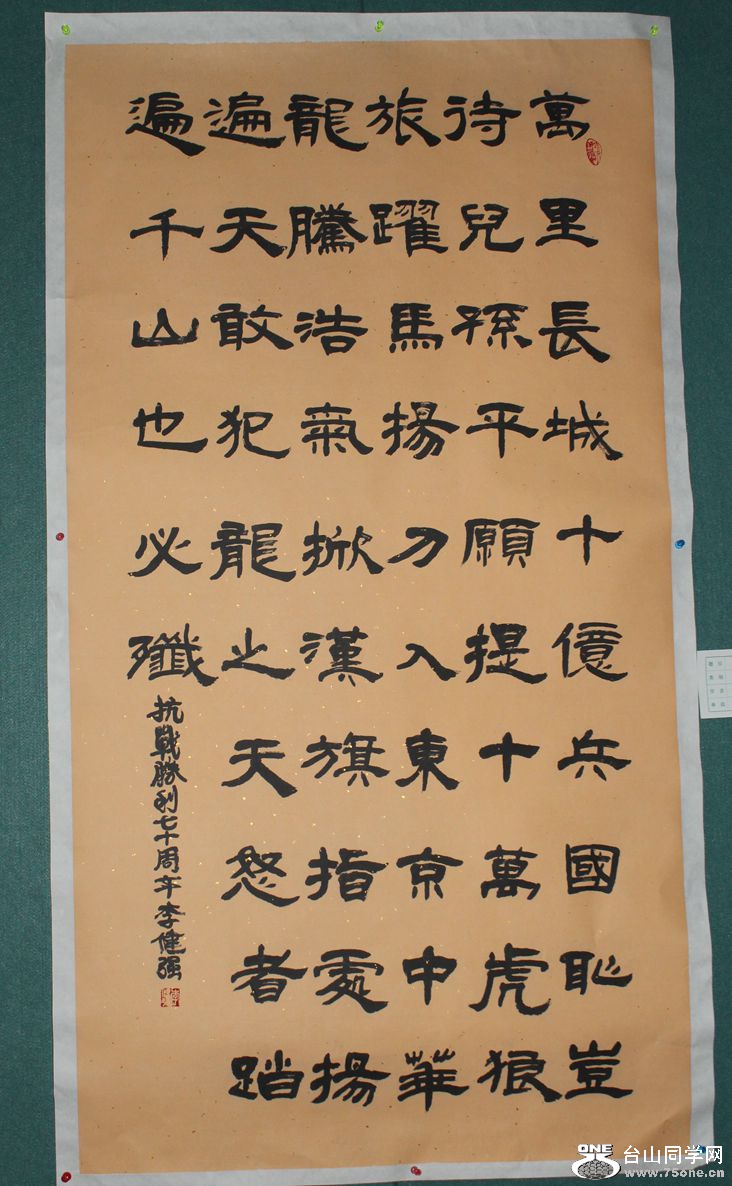 萬里長城十億兵國恥豈
待兒孫平願提十萬虎狼
旅躍馬揚刀入東京中華
龍騰浩氣掀漢旗指處揚
遍天敢犯龍之天怒者踏
遍千山也必殲
抗戰勝利七十周年李健强
ONE 台山同学网
www.75one.cn